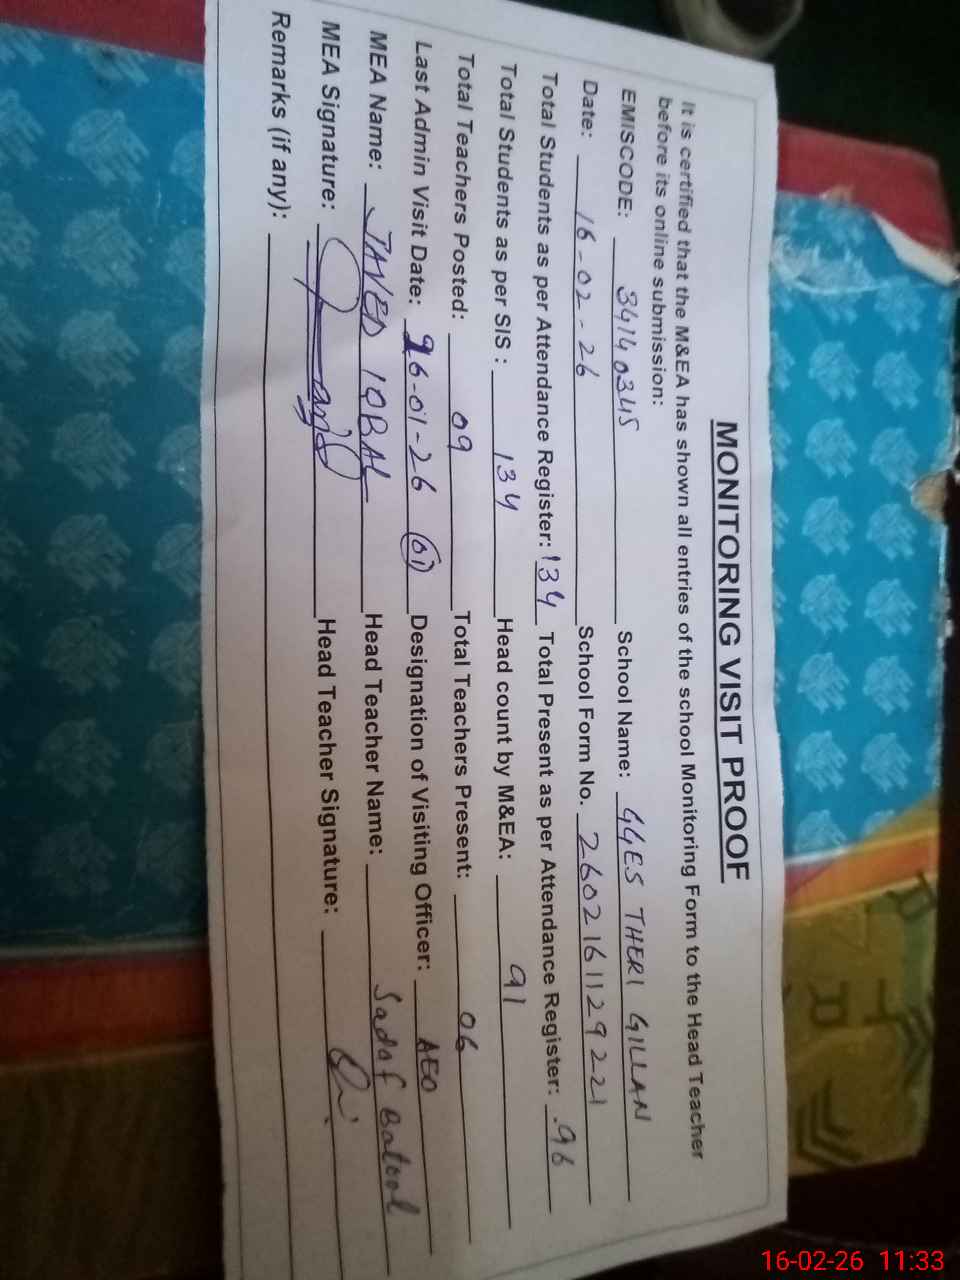 MONITORING VISIT PROOF
It is certified that the M&EA has shown all entries of the school Monitoring Form to the Head Teacher
before its online submission:
EMISCODE: 34140345 School Name: GGES THERI GILLAN
Date: 16-02-26 School Form No. 2602161129221
Total Students as per Attendance Register: 134 Total Present as per Attendance Register: 96
Total Students as per SIS : 134 Head count by M&EA: 91
Total Teachers Posted: 09 Total Teachers Present: 06
Last Admin Visit Date: 26-01-26 01 Designation of Visiting Officer: AEO
MEA Name: JAVED IQBAL Head Teacher Name: Sadaf Batool
MEA Signature: Head Teacher Signature:
Remarks (if any):
16-02-26 11:33